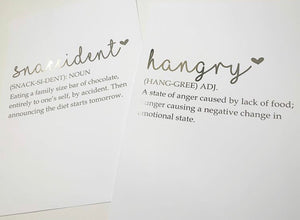 snaccident
(SNACK-SI-DENT): NOUN
Eating a family size bar of chocolate,
entirely to one's self, by accident. Then
announcing the diet starts tomorrow.
hangry
(HANG-GREE) ADJ.
A state of anger caused by lack of food;
hunger causing a negative change in
emotional state.